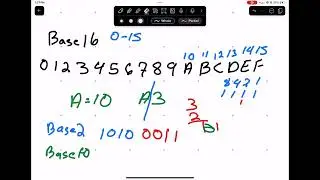 Base 16 0-15
10 11 12 13 14 15
0 1 2 3 4 5 6 7 8 9 A B C D E F
8 4 2 1
A=10 A3 1 1 1 1
3
2
Base 2 1010 0011
Base 10